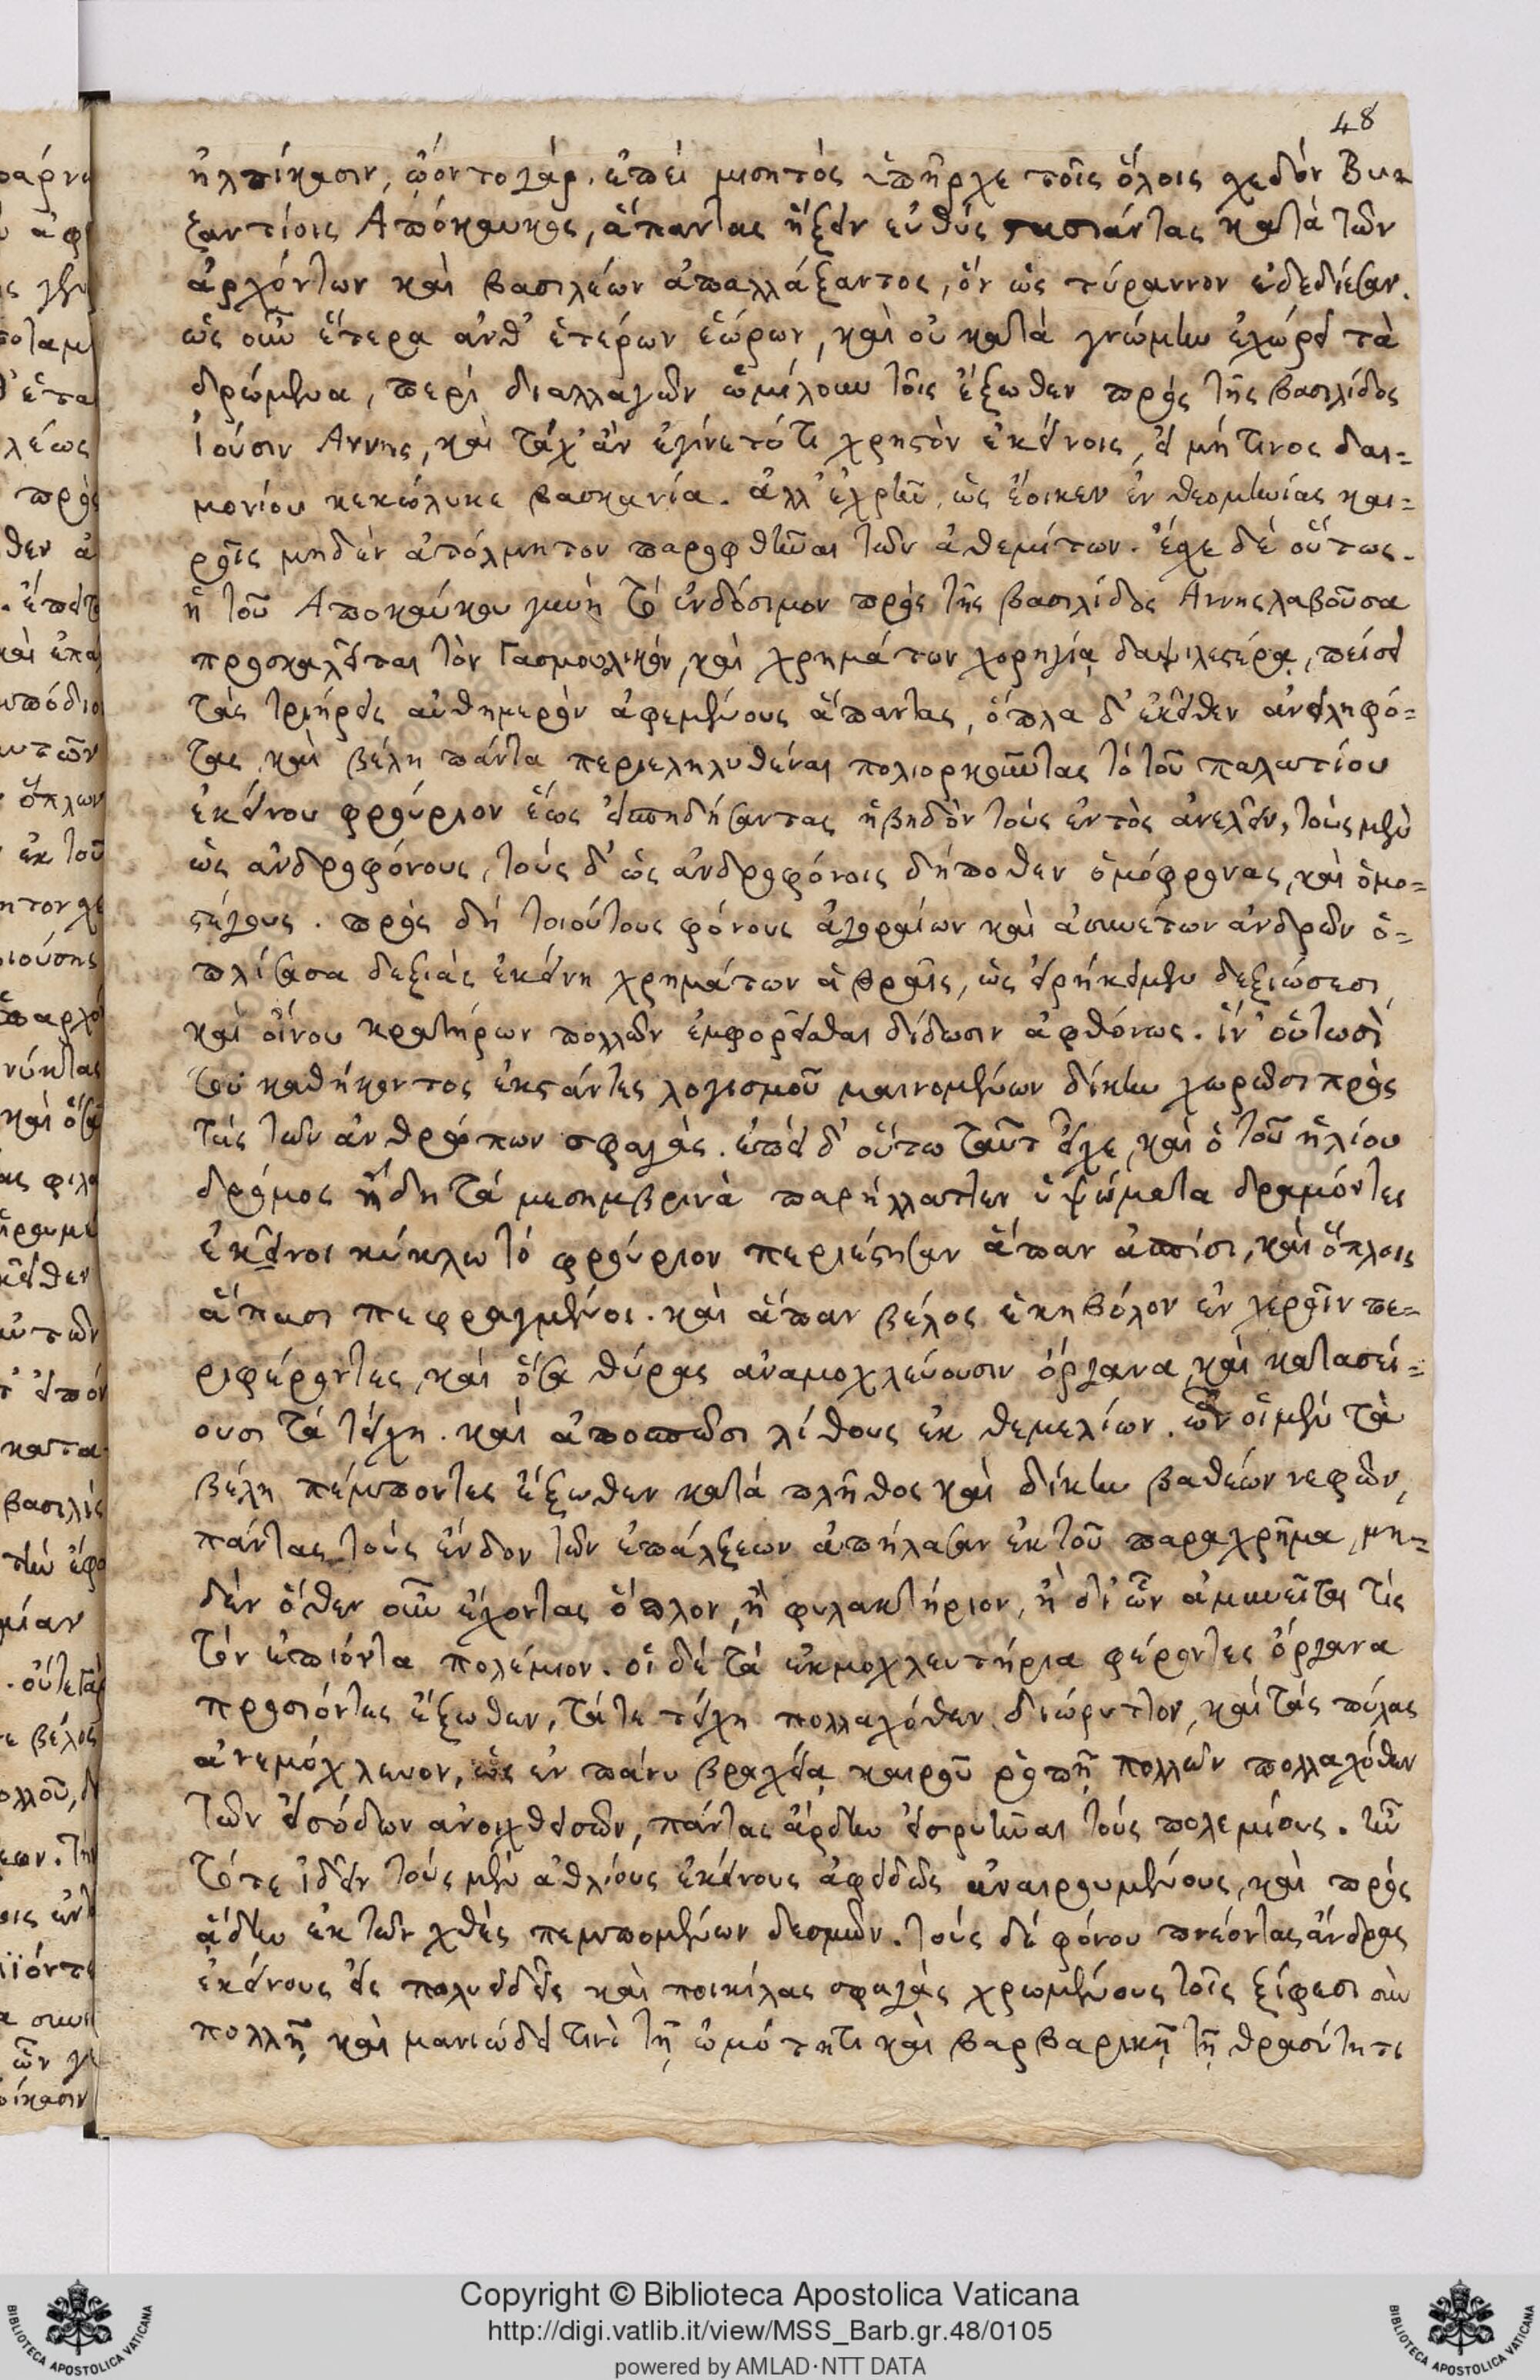 48
ἠλπίκασιν, ᾤοντο γάρ, ἐπεί μισητὸς ὑπῆρχε τοῖς ὅλοις σχεδόν Βυ-
ζαντίοις Ἀπόκαυκος, ἅπαντας ἥξειν εὐθύς στασιάσαντας κατὰ τῶν
ἀρχόντων καὶ βασιλέων ἀπαλλάξαντος, ὅν ὡς τύραννον ἐδεδίεσαν.
ὡς οὖν ἕτερα ἀνθ' ἑτέρων ἑώρων, καὶ οὐ κατὰ γνώμην ἐχώρει τὰ
δρώμενα, περὶ διαλλαγῶν ὡμίλουν τοῖς ἔξωθεν πρὸς τῆς βασιλίδος
ἰοῦσιν Ἄννης, καὶ τάχ' ἄν ἐγίνετό τι χρηστὸν ἐκείνοις, εἰ μή τινος δαι=
μονίου κεκώλυκε βασκανία. ἀλλ' ἐχρῆν, ὡς ἔοικεν ἐν θεομηνίας και=
ροῖς μηδὲν ἀτόλμητον παροφθῆναι τῶν ἀθεμίτων. εἶχε δέ οὕτως.
ἡ τοῦ Ἀποκαύκου γυνὴ τὸ ἐνδόσιμον πρὸς τῆς βασιλίδος Ἄννης λαβοῦσα
προσκαλεῖται τὸν Γασμουλικόν, καὶ χρημάτων χορηγίᾳ δαψιλεστέρᾳ, πείθει
τάς τριήρεις αὐθημερὸν ἀφεμένους ἅπαντας, ὅπλα δ' ἐκεῖθεν ἀνειληφό=
τας, καὶ βέλη πάντα περιεληλυθέναι πολιορκοῦντας τὸ τοῦ παλατίου
ἐκείνου φρούριον ἕως εἰσπηδήσαντας ἡβηδὸν τοὺς ἐντὸς ἀνελεῖν, τοὺς μὲν
ὡς ἀνδροφόνους, τοὺς δ' ὡς ἀνδροφόνοις δήποθεν ὁμόφρονας, καὶ ὁμο=
στέγους. πρὸς δὴ τοιούτους φόνους ἀγοραίων καὶ ἀσυνέτων ἀνδρῶν ὁ=
πλίσασα δεξιὰς ἐκείνη χρημάτων ἁδραῖς, ὡς εἰρήκειμεν δεξιώσεσι,
καὶ οἴνου κρατήρων πολλῶν ἐμφορεῖσθαι δίδωσιν ἀφθόνως. ἵν' οὑτωσὶ
τοῦ καθήκοντος ἐκστάντες λογισμοῦ μαινομένων δίκην χωρῶσι πρὸς
τὰς τῶν ἀνθρώπων σφαγὰς. ἐπεὶ δ' οὕτω ταῦτ' εἶχε, καὶ ὁ τοῦ ἡλίου
δρόμος ἤδη τὰ μεσημβρινὰ παρήλλαττεν ὑψώματα δραμόντες
ἐκεῖνοι κύκλῳ τὸ φρούριον περιέστησαν ἅπαν ἀσπίσι, καὶ ὅπλοις
ἅπασι πεφραγμένοι. καὶ ἅπαν βέλος ἑκηβόλον ἐν χεροῖν πε=
ριφέροντες, καὶ ὅσα θύρας ἀναμοχλεύουσιν ὄργανα, καὶ κατασεί=
ουσι τὰ τείχη. καὶ ἀποσπῶσι λίθους ἐκ θεμελίων. ὧν οἱ μὲν τὰ
βέλη πέμποντες ἔξωθεν κατὰ πλῆθος καὶ δίκην βαθέων νεφῶν,
πάντας τοὺς ἔνδον τῶν ἐπάλξεων ἀπήλασαν ἐκ τοῦ παραχρῆμα, μη=
δὲν ὅθεν οὖν ἔχοντας ὅπλον, ἢ φυλακτήριον, ἢ δι' ὧν ἀμυνεῖται τίς
τὸν ἐπιόντα πολέμιον. οἱ δὲ τὰ ἐκμοχλευτήρια φέροντες ὄργανα
προσιόντες ἔξωθεν, τά τε τείχη πολλαχόθεν διώρυττον, καὶ τὰς πύλας
ἀνεμόχλευον, ὡς ἐν πάνυ βραχείᾳ καιροῦ ῥοπῇ πολλῶν πολλαχόθεν
τῶν εἰσόδων ἀνοιχθεισῶν, πάντας ἄρδην εἰσρυῆναι τοὺς πολεμίους. ἦν
τότε ἰδεῖν τοὺς μὲν ἀθλίους ἐκείνους ἀφειδῶς ἀναιρουμένους, καὶ πρὸς
ᾅδην ἐκ τῶν χθὲς πεμπομένων δεσμῶν. τοὺς δὲ φόνου πνέοντας ἄνδρας
ἐκείνους εἰς πολυειδεῖς καὶ ποικίλας σφαγὰς χρωμένους τοῖς ξίφεσι σὺν
πολλῇ καὶ μανιώδει τινὶ τῇ ὠμότητι καὶ βαρβαρικῇ τῇ θρασύτητι
Copyright © Biblioteca Apostolica Vaticana
http://digi.vatlib.it/view/MSS_Barb.gr.48/0105
powered by AMLAD·NTT DATA
BIBLIOTECA APOSTOLICA VATICANA
BIBLIOTECA APOSTOLICA VATICANA